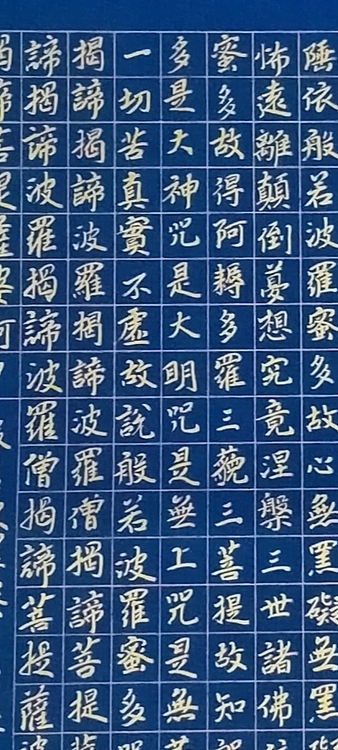 埵依般若波羅蜜多故心無罣礙無罣
怖遠離顛倒夢想究竟涅槃三世諸佛
蜜多故得阿耨多羅三藐三菩提故知
多是大神咒是大明咒是無上咒是無
一切苦真實不虛故說般若波羅蜜多
揭諦揭諦波羅揭諦波羅僧揭諦菩提
諦揭諦波羅揭諦波羅僧揭諦菩提薩